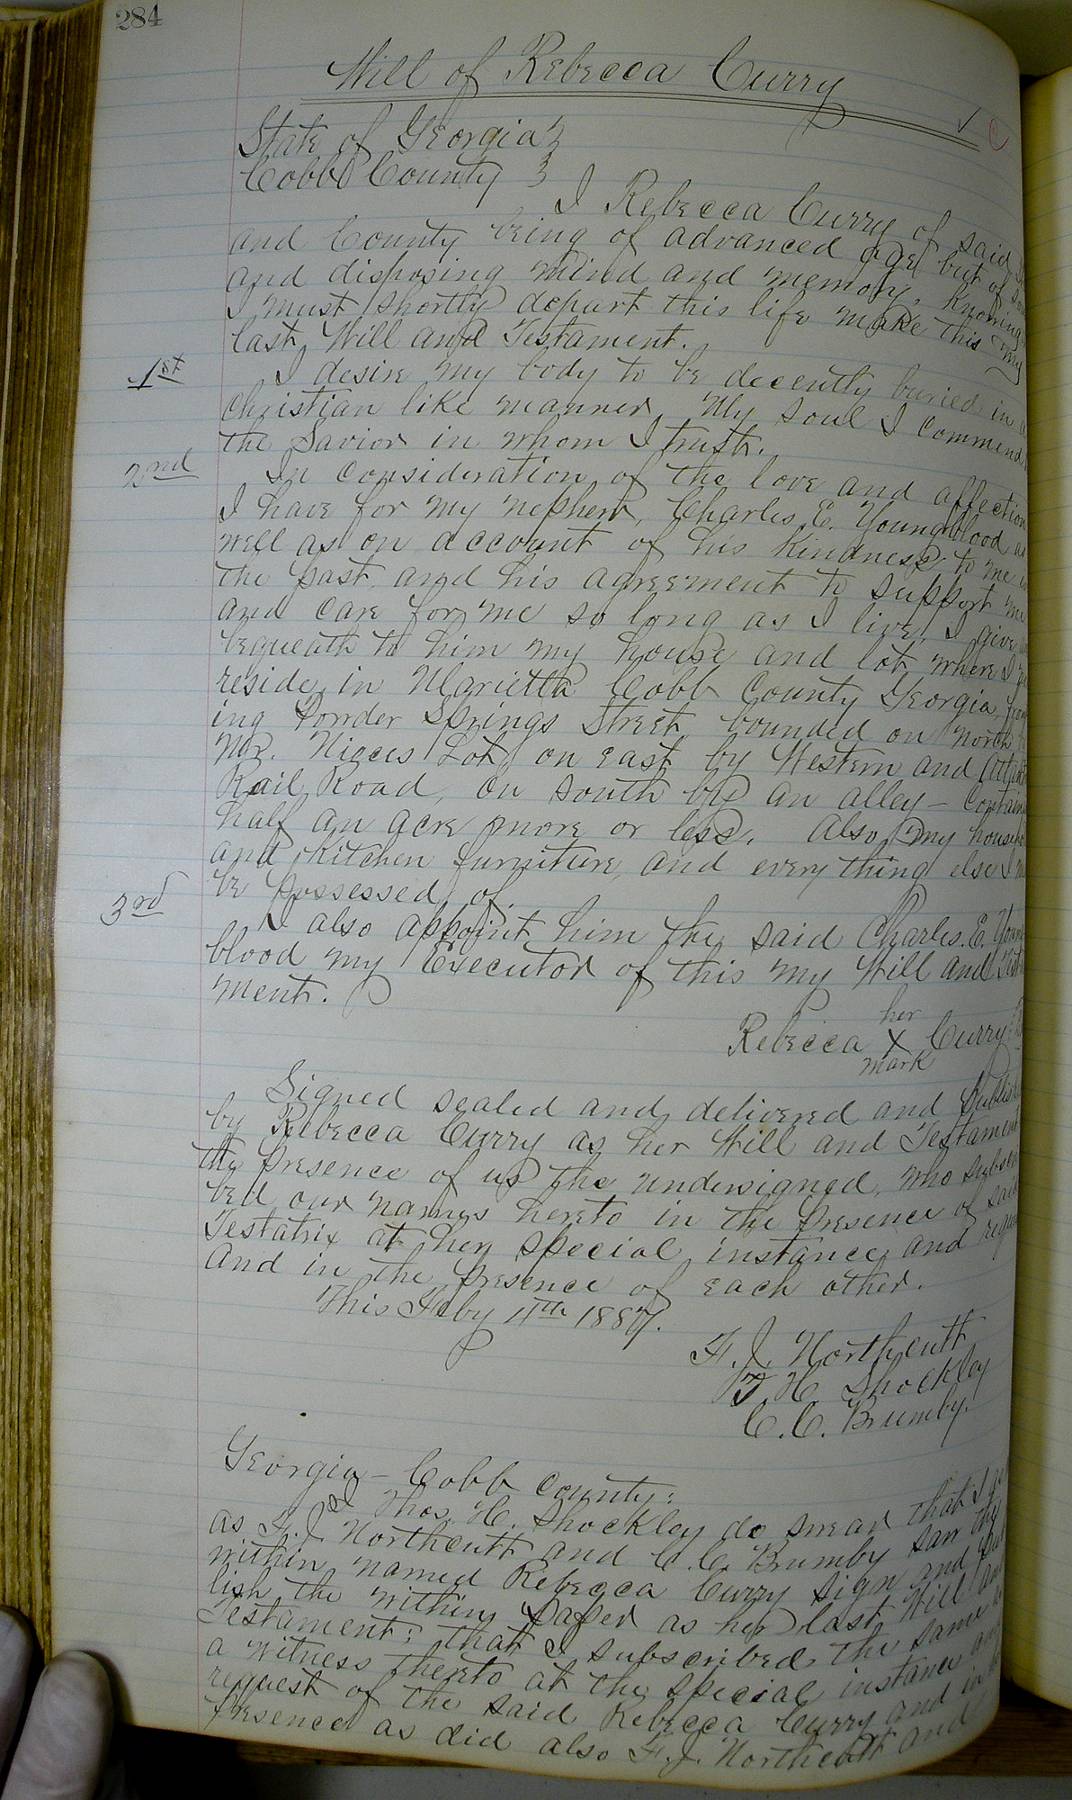 284
Will of Rebecca Curry
State of Georgia }
Cobb County }
I Rebecca Curry of said
and County being of advanced age but of
and disposing mind and memory, knowing
I must shortly depart this life make this my
last Will and Testament.
1st I desire my body to be decently buried in a
Christian like manner, My soul I commend
the Savior in whom I trust.
2nd In consideration of the love and affection
I have for my nephew, Charles E. Youngblood as
well as on account of his kindness to me
the past and his agreement to support me
and care for me so long as I live, I give
bequeath to him my house and lot where I
reside in Marietta Cobb County Georgia,
ing Powder Springs Street, bounded on North
Mr. Lot, on east by Western and
Rail Road, on South by an alley – Contain
half an acre more or less. Also, my house
and Kitchen furniture, and everything else I
be possessed of.
3rd I also appoint him the said Charles. E. Young
blood my Executor of this my Will and Testa
ment.
her
Rebecca X Curry
mark
Signed sealed and delivered and Publish
by Rebecca Curry as her Will and Testament
the presence of us the undersigned, who subscri
bed our names hereto in the presence of said
Testatrix at her special instance and
and in the presence of each other.
This Feby 4th 1887.
F. J. Northcutt
T H Shockley
C. C. Brumby.
Georgia – Cobb County:
I Thos. H. Shockley do swear that I
as F. J. Northcutt and C. C. Brumby saw the
within named Rebecca Curry sign and Pub
lish the within paper as her last Will and
Testament: that I subscribed the same
a witness thereto at the special instance and
request of the said Rebecca Curry and in
presence as did also F. J. Northcutt and